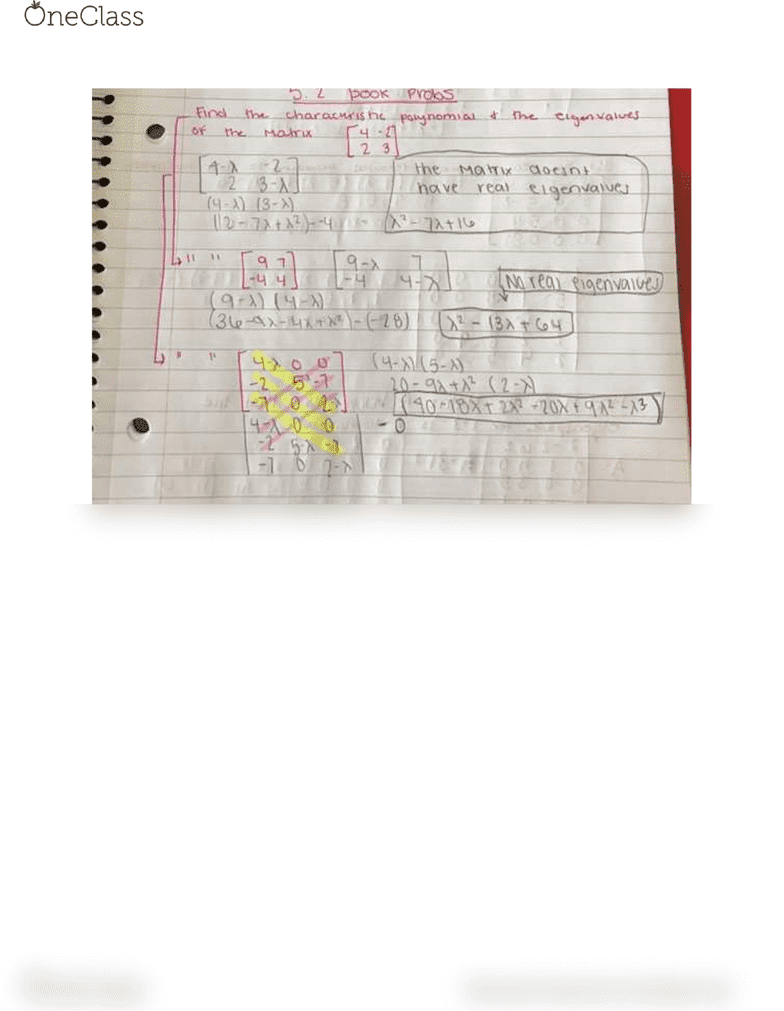 OneClass
5.2 book probs
Find the characteristic polynomial & the eigenvalues
of the Matrix [4 -2
2 3]
[4-λ -2
2 3-λ]
the Matrix doesnt
have real eigenvalues
(4-λ) (3-λ)
(12-7λ+λ²)--4 = λ²-7λ+16
" " [9 7
-4 4]
[9-λ 7
-4 4-λ]
No real eigenvalues
(9-λ) (4-λ)
(36-9λ-4λ+λ²)-(-28) λ²-13λ+64
" " [4-λ 0 0
-2 5 -7
-7 0 2]
(4-λ)(5-λ)
20-9λ+λ² (2-λ)
(40-18λ+2λ²-20λ+9λ²-λ3)
- 0
4-λ 0 0
-2 5-λ
-7 0 2-λ